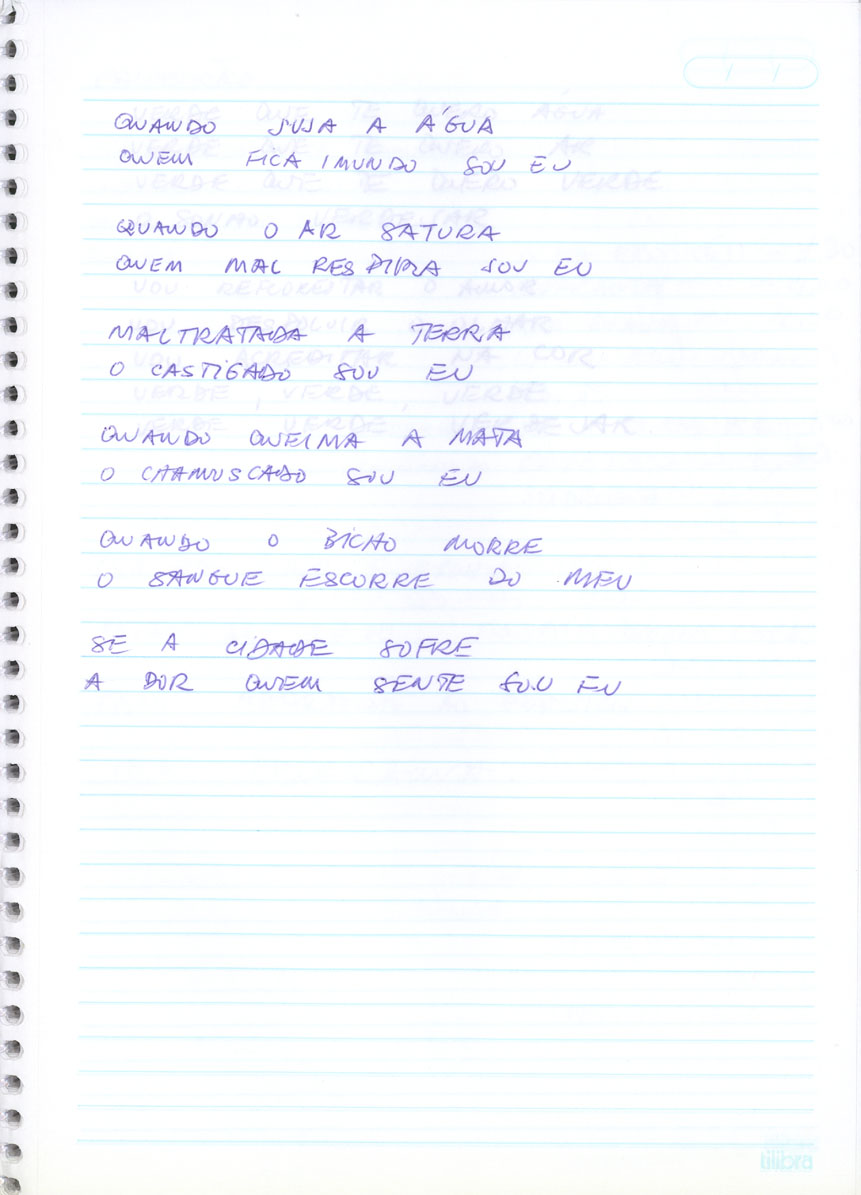 QUANDO SUJA A ÁGUA
QUEM FICA IMUNDO SOU EU
QUANDO O AR SATURA
QUEM MAL RESPIRA SOU EU
MALTRATADA A TERRA
O CASTIGADO SOU EU
QUANDO QUEIMA A MATA
O CHAMUSCADO SOU EU
QUANDO O BICHO MORRE
O SANGUE ESCORRE DO MEU
SE A CIDADE SOFRE
A DOR QUEM SENTE SOU EU
tilibra